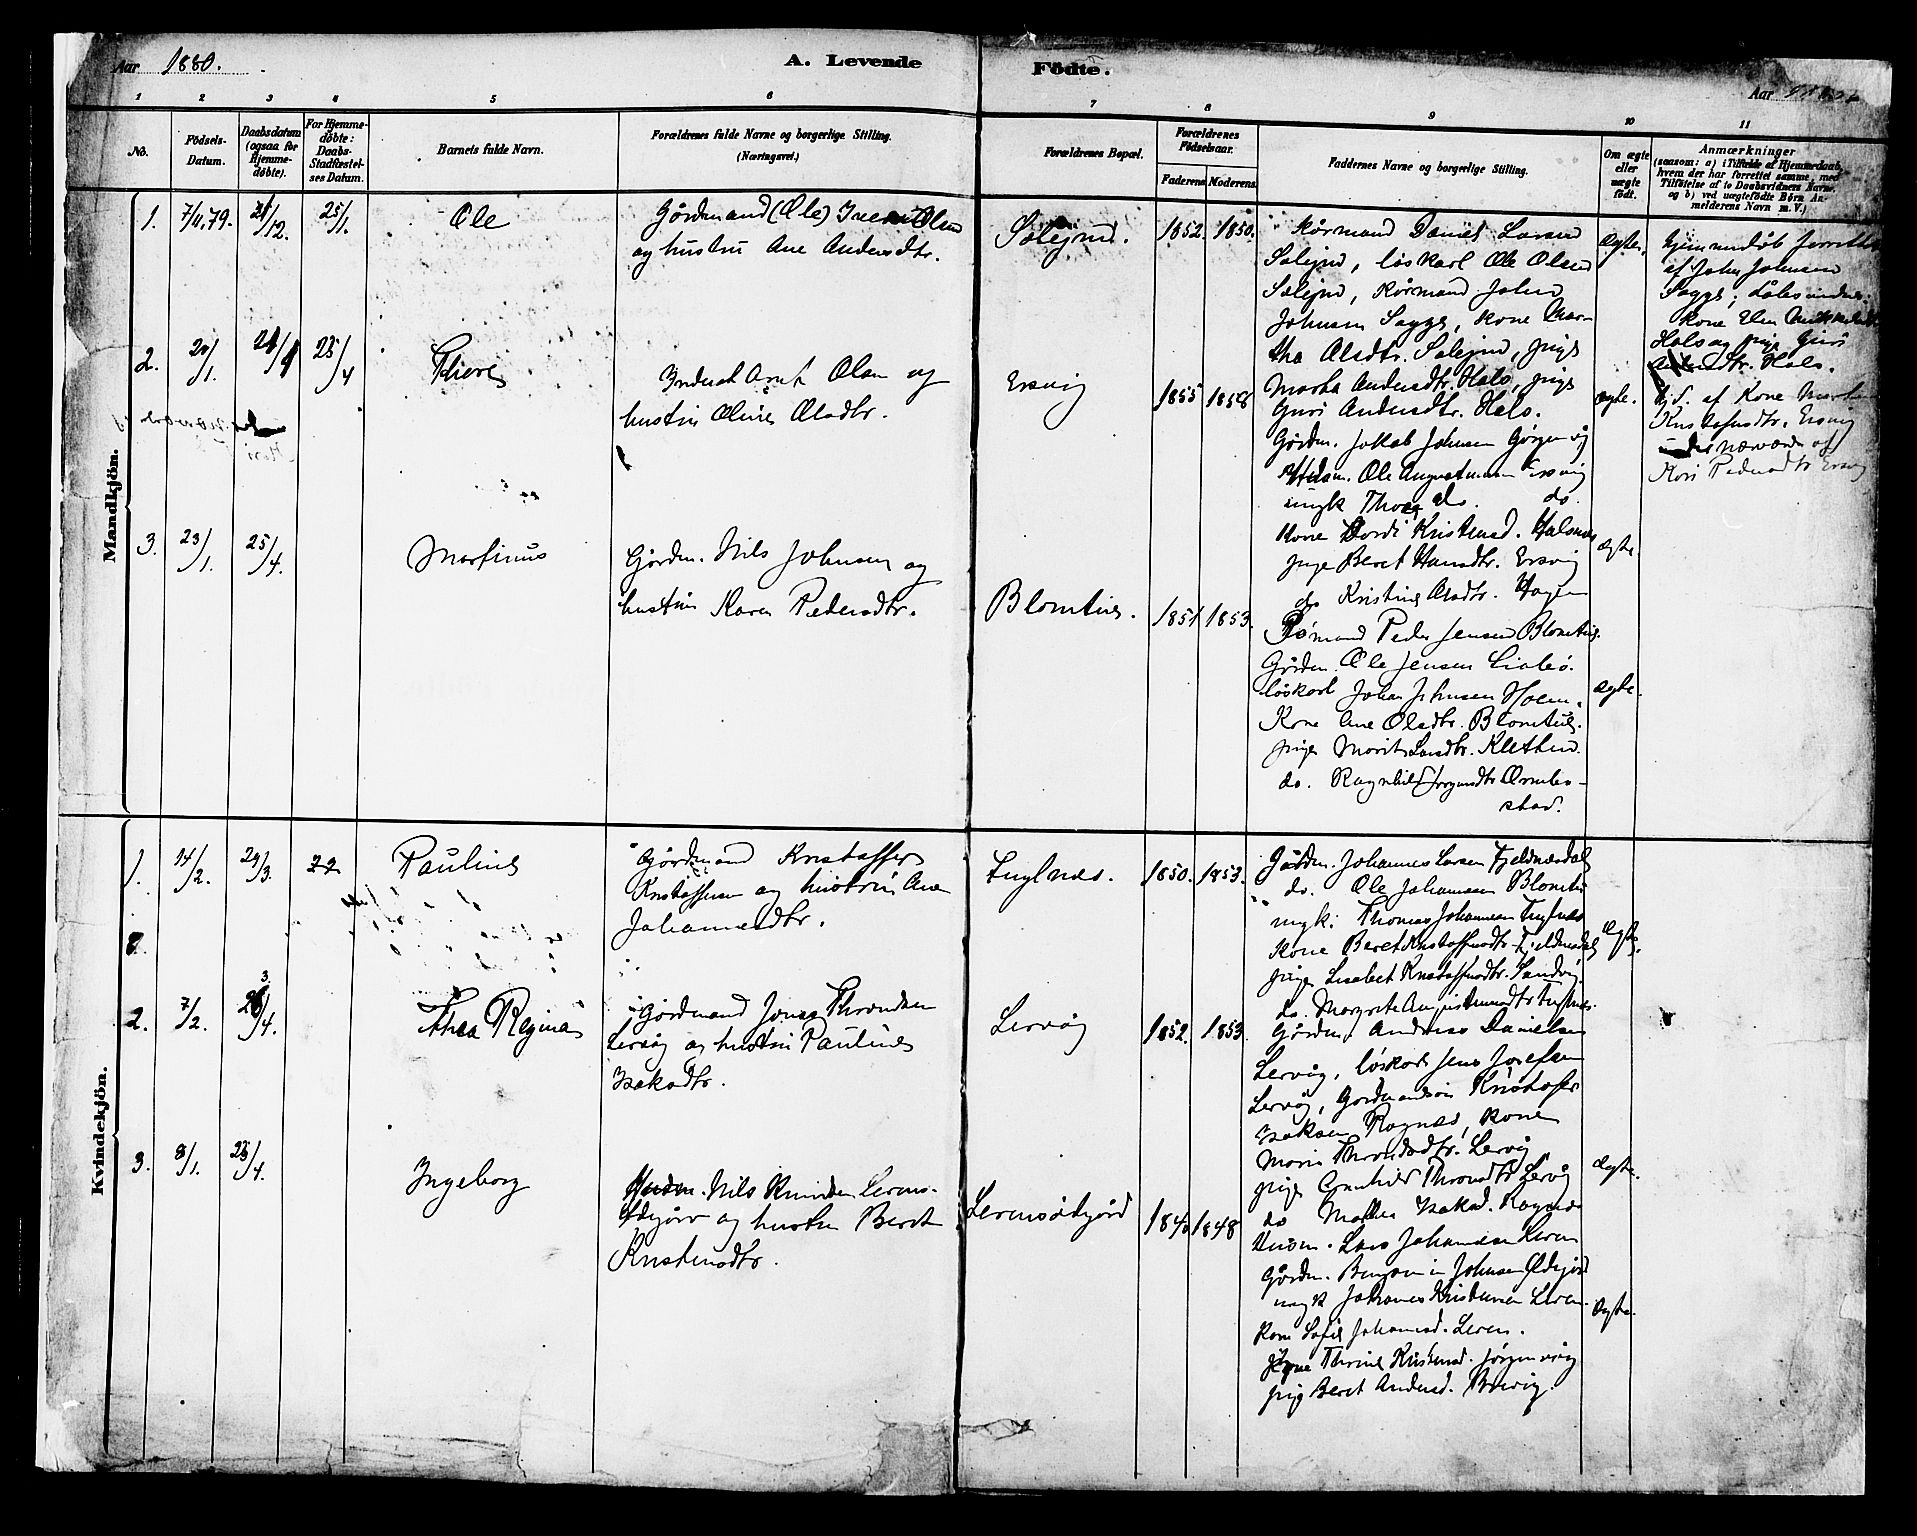 Aar 1880.
A. Levende Födte.
Aar
1 2 3 4 5 6 7 8 9 10 11
No.
Födsels-
Datum.
Daabsdatum
(ogsaa for
Hjemme-
döbte).
For Hjemme-
döbte:
Daabs-
Stadfæstel-
ses Datum.
Barnets fulde Navn.
Forældrenes fulde Navne og borgerlige Stilling.
(Næringsvei.)
Forældrenes Bopæl.
Forældrenes
Födselsaar.
Faderens. Moderens.
Faddernes Navne og borgerlige Stilling.
Om ægte
eller
uægte
födt.
Anmærkninger
(saasom: a) i Tilfælde af Hjemmedaab,
hvem der har forrettet samme, med
Tilföielse af to Daabsvidners Navne,
og b) ved uægtefödte Börn An-
melderens Navn m. V.)
Mandkjön.
1. 7/11.79. /12. 25/1. Ole
Gårdmand (Ole) Iver Olsen
og hustru Ane Andersdtr.
1852. 1850.
Kårmand Daniel Larsen
Solejnd, løskarl Ole Olsen
Solejnd, Kårmand John
Johnsen Sagge, Kone Mar-
tha Olsdtr. Solejnd, pige
Martha Andersdtr. Hals, pige
Guri Andersdtr. Hals.
ægte.
Hjemmedøb forrettet
af John Johnsen
Sagge; dåbsvidner:
Kone Elen
Hals og pige Guri
Andersdtr. Hals.
2. 20/1. 25/4 Thore
Inderst Arnt Olsen og
hustru Oline Olsdtr.
Ersvig
1855 1858
Gårdm. Jakob Johnsen Gørgenvig
Husm. Ole Augustinussen Ersvig
ungk Thore do. do.
Kone Dordi Kristensd. Halsnes
pige Beret Hansdtr. Ersvig
do Kristine Olsdtr. Hagen
ægte.
hj. d. af Kone Martha
Kristofersdtr. Ersvig
under nærværelse af
Kari Pedersdtr Ersvig
3. 23/1. 25/4. Martinus
Gårdm. Nils Johnsen og
hustru Karen Pedersdtr.
Blomtun.
1851 1853.
Peder Jensen Blomtun.
Gårdm. Ole Jensen Liabø.
løskarl Johan Johnsen Hoem.
Kone Ane Olsdtr. Blomtun.
pige Marit Larsdtr. Kletten.
do. Ragnhild Jørgensdtr Ørnbo-
stad.
ægte.
ægte.
Kvindekjön.
1. 14/2. 29/3. Pauline
Gårdmand Kristoffer
Kristoffersen og hustru Ane
Johannesdtr.
Fuglnæs.
1850. 1853.
Gårdm. Johannes Larsen Fjeldnæsdal
do. Ole Johannesen Blomtun
ungk: Thomas Johannesen Fuglnæs
Kone Beret Kristoffersdtr. Fjeldnæsdal
pige Lisabet Kristoffersdtr. Sandvig
do. Margrete Augustinusdtr Fuglnæs.
Ægte.
2. 7/2. /4. Thea Regina
Gårdmand Jonas Throndsen
Lervåg og hustru Pauline
Isaksdtr.
Lervåg
1852. 1853.
Gårdm. Andreas Danielsen
Lervåg, løskarl Jens Josefsen
Lervåg, Gårdmandsøn Kristofer
Isaksen Rognæs, Kone
Marie Throndsdtr. Lervåg
pige Gunhild Throndsdtr Lervåg
do Mathea Isaksd. Rognæs
Ægte.
3. 8/1. 25/4. Ingeborg
Husm. Nils Knudsen Lerens-
ødegård og hustru Beret
Kristensdtr.
Lerensødegård
1840 1848
Husm. Lars Johannesen Leren
Gårdm. Benjamin Johnsen Ødegård
ungk Johannes Kristensen Leren.
Kone Sofie Johannesd. Leren.
Kone Thrine Kristensd. Jørgenvåg
pige Beret Andersd. Bævrig.
Ægte.